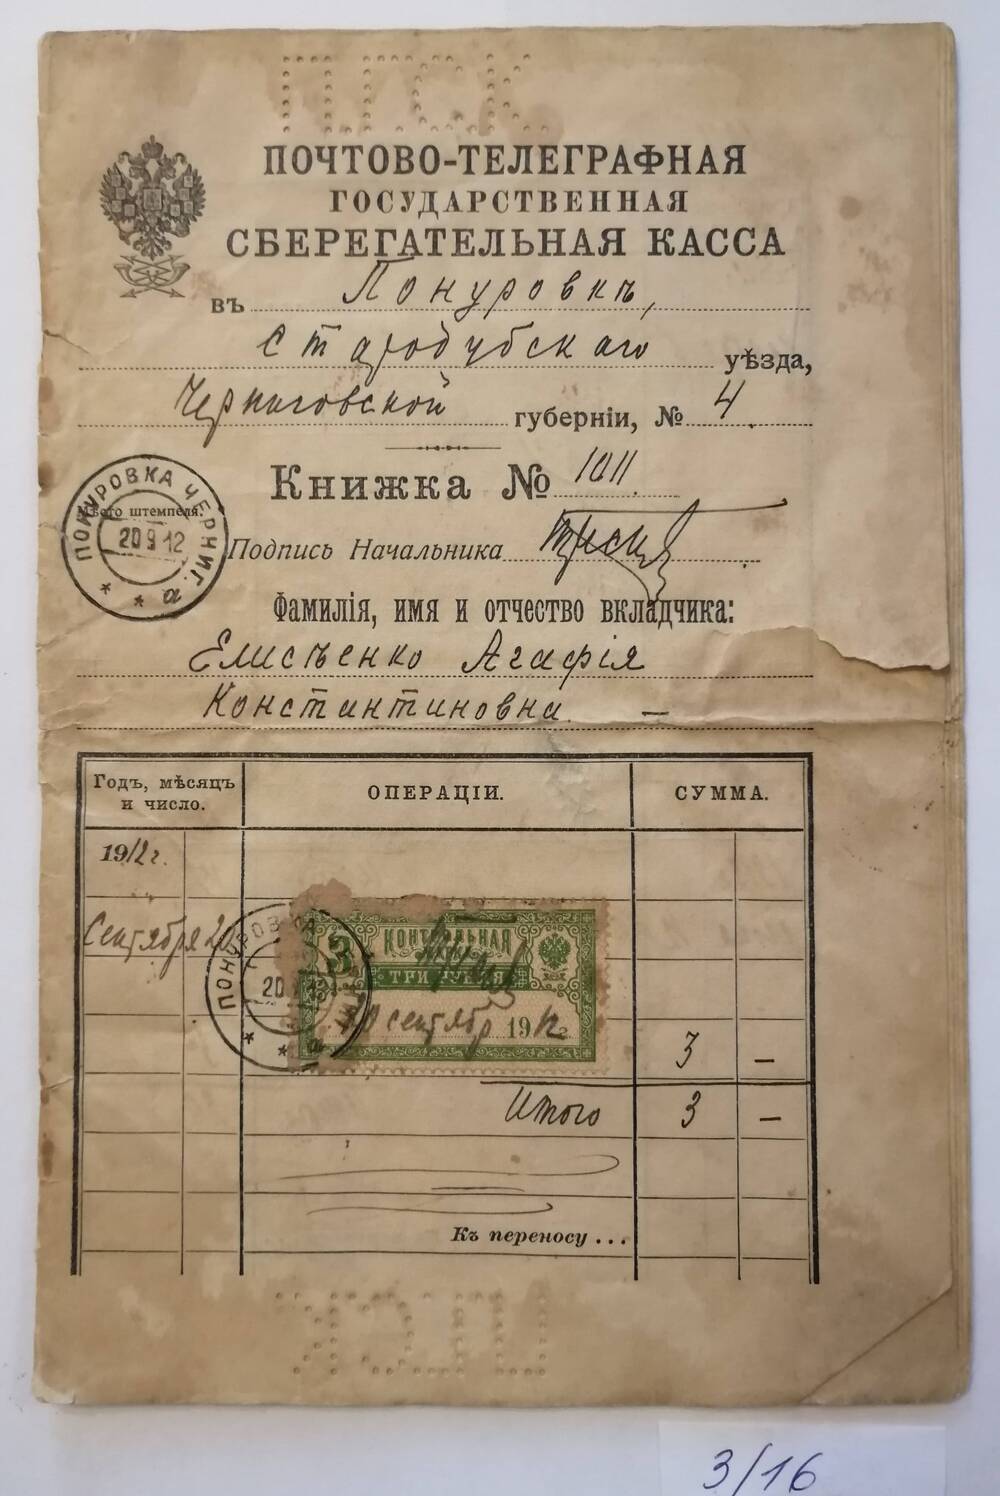 ПГСК
ПОЧТОВО-ТЕЛЕГРАФНАЯ
ГОСУДАРСТВЕННАЯ
СБЕРЕГАТЕЛЬНАЯ КАССА
въ Понуровкѣ,
Стародубскаго уѣзда,
Черниговской губерніи, № 4
Книжка № 1011
Мѣсто штемпеля.
ПОНУРОВКА ЧЕРНИГ.
20 9 12
* * а
Подпись Начальника
Фамилія, имя и отчество вкладчика:
Елисѣенко Агафія
Константиновна. —
Годъ, мѣсяцъ и число.
ОПЕРАЦІИ.
СУММА.
1912 г.
Сентября 20
ПОНУРОВКА
20
* * а
3 КОНТРОЛЬНАЯ
ТРИ РУБЛЯ
20 сентябр 1912 г
3 —
Итого 3 —
Къ переносу ...
ПГСК
3/16